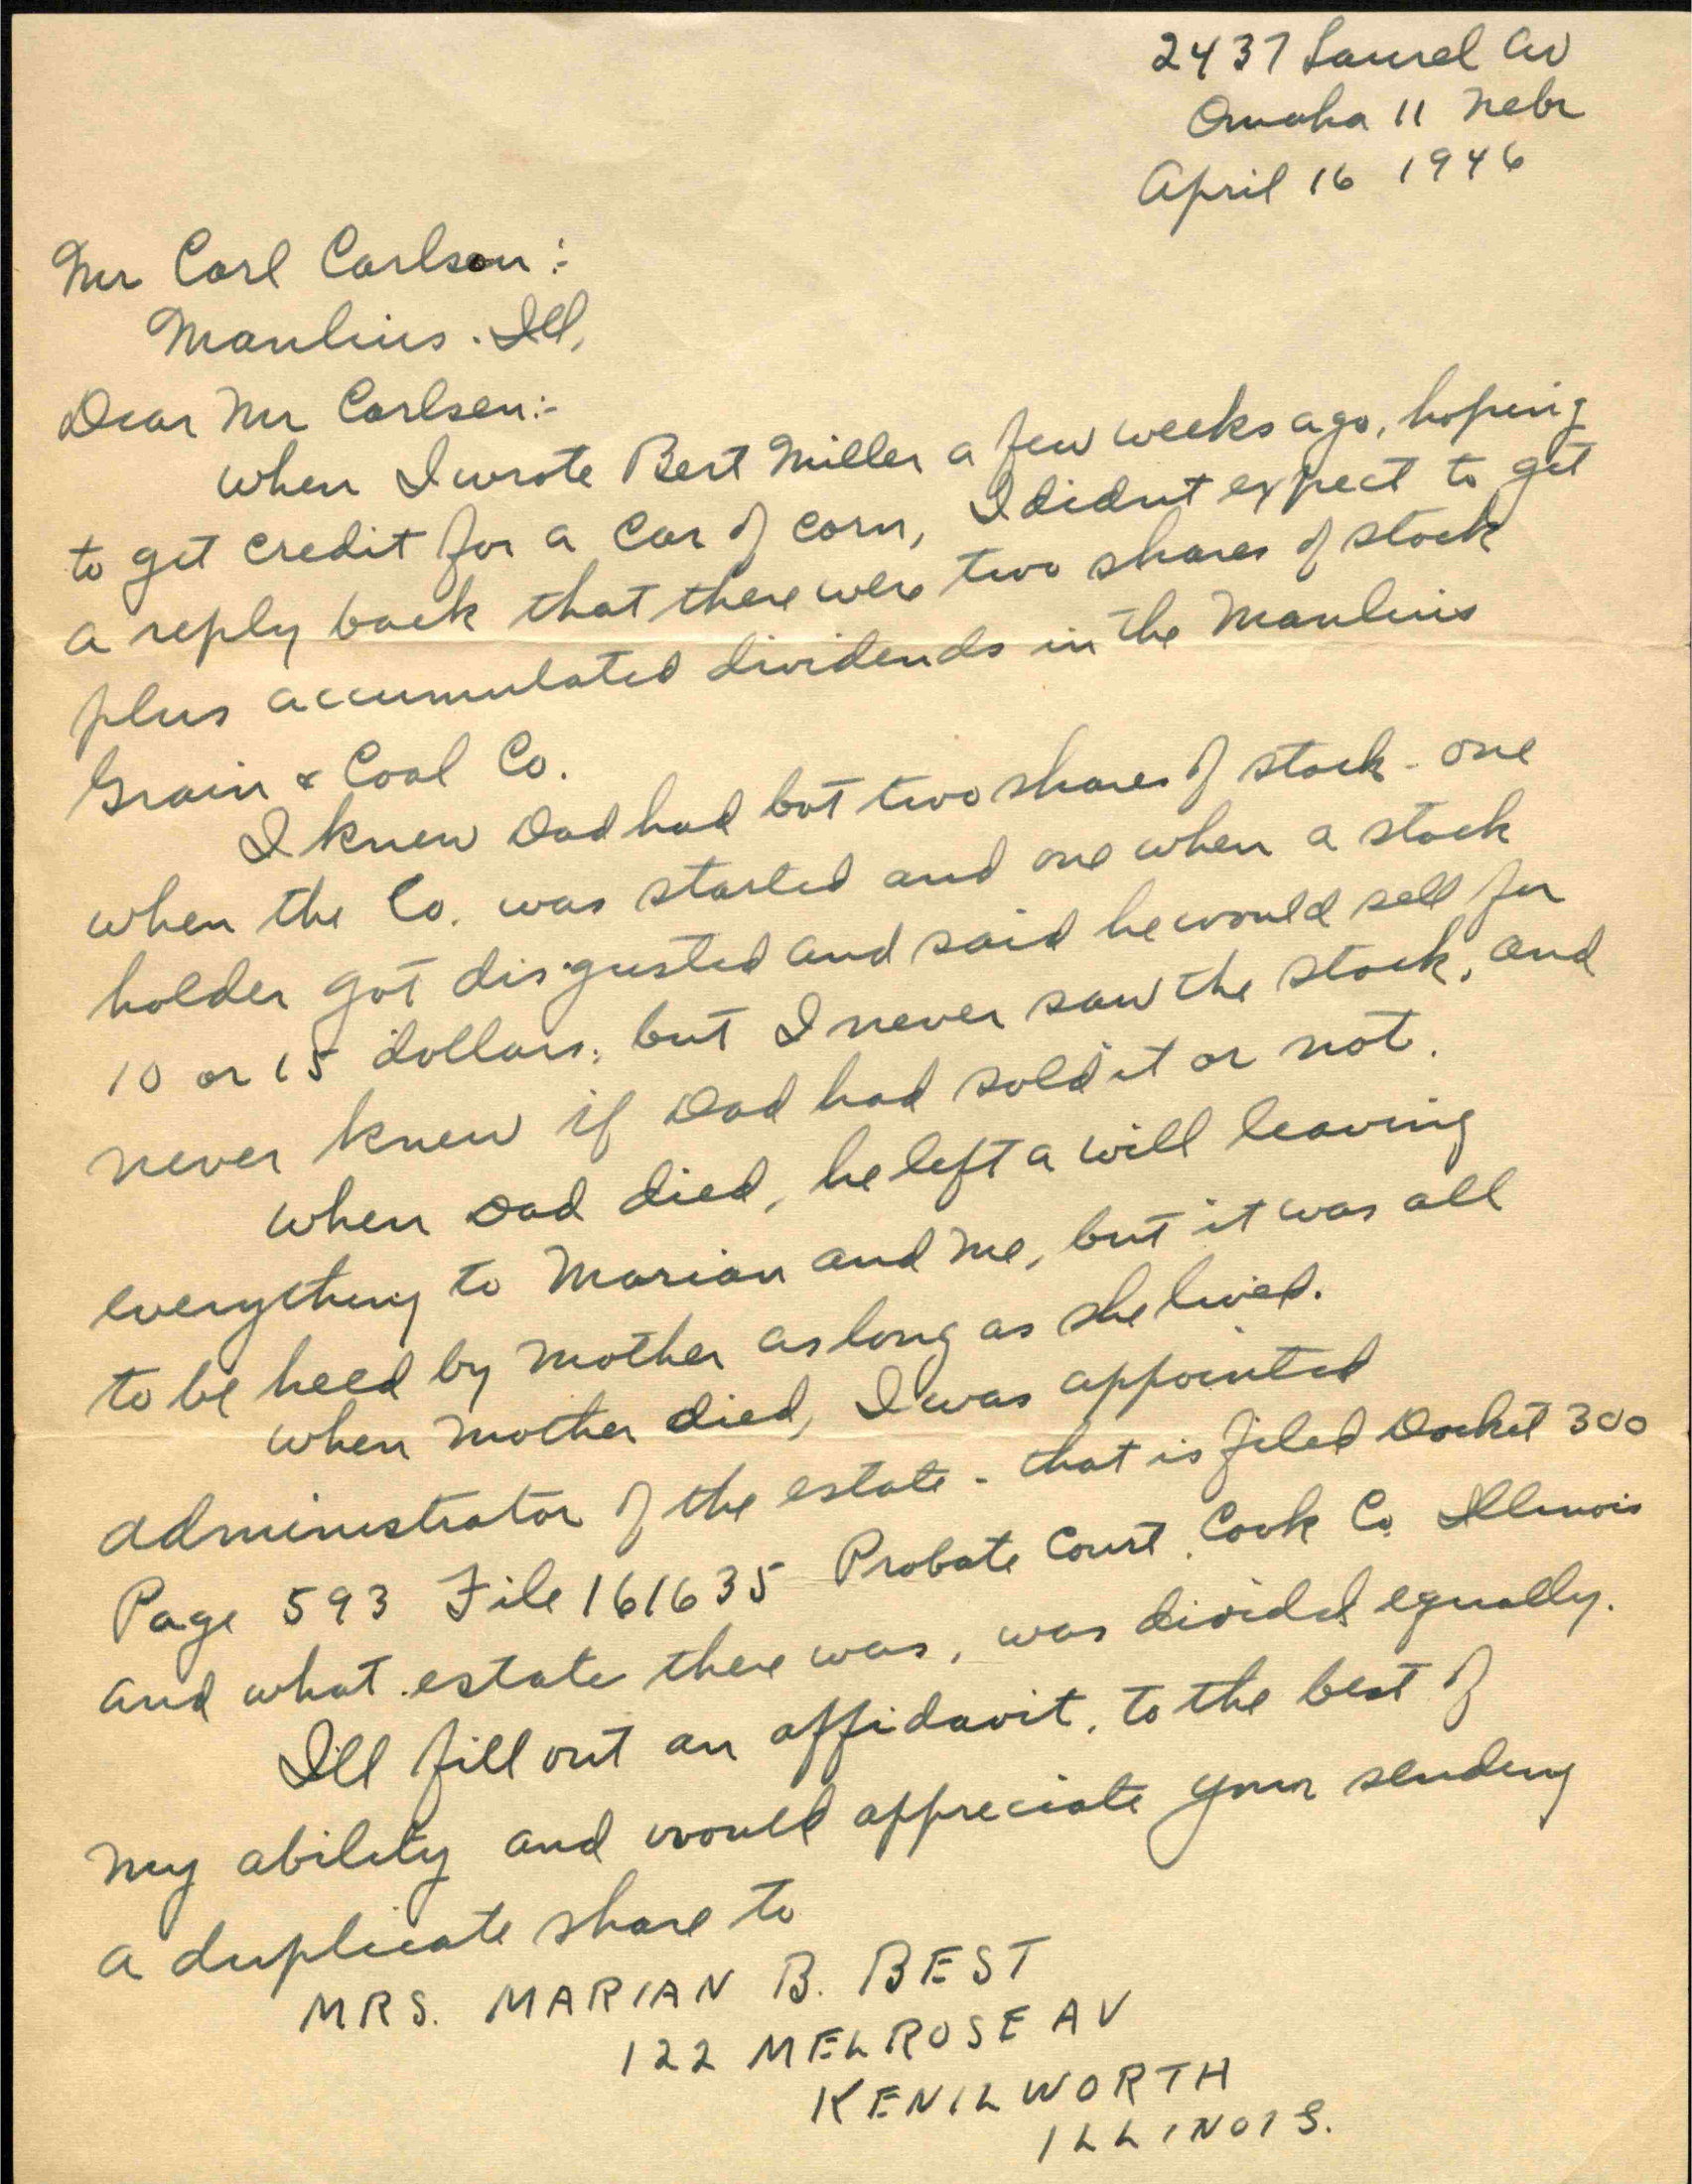 2437 Laurel Av
Omaha 11 Nebr
April 16 1946
Mr Carl Carlson:-
Manlius. Ill,
Dear Mr Carlsen:-
When I wrote Bert Miller a few weeks ago, hoping
to get credit for a car of corn, I didnt expect to get
a reply back that there were two shares of stock
plus accumulated dividends in the Manlius
Grain & Coal Co.
I knew Dad had bot two shares of stock - one
when the Co. was started and one when a stock
holder got disgusted and said he would sell for
10 or 15 dollars; but I never saw the stock, and
never knew if Dad had sold it or not.
When Dad died, he left a will leaving
everything to Marian and me, but it was all
to be heed by Mother as long as she lived.
When Mother died, I was appointed
administrator of the estate - that is filed Docket 300
Page 593 File 161635 Probate Court. Cook Co. Illinois
and what estate there was, was divided equally.
I'll fill out an affidavit, to the best of
my ability and would appreciate your sending
a duplicate share to
MRS. MARIAN B. BEST
122 MELROSE AV
KENILWORTH
ILLINOIS.